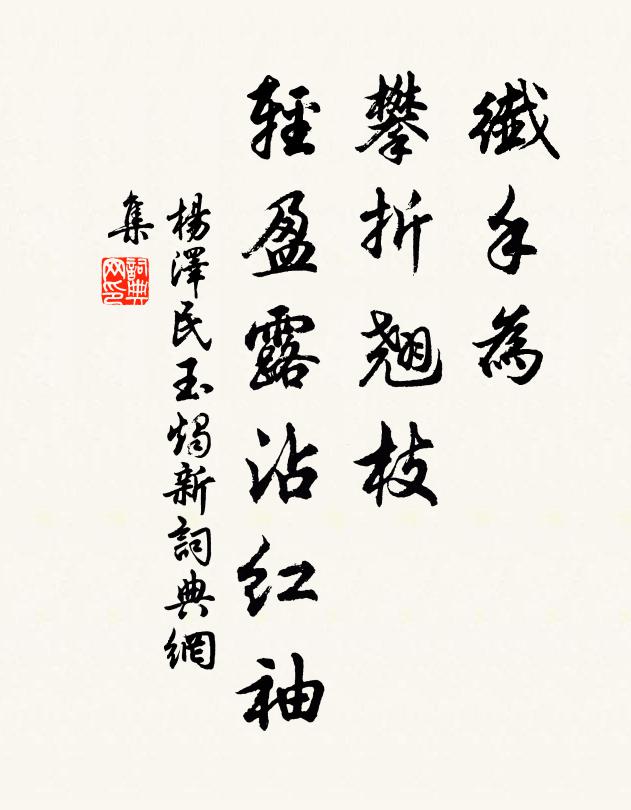 纖手為
攀折翹枝
輕盈露沾紅袖
楊澤民玉燭新詞典網
集
詞典
网印